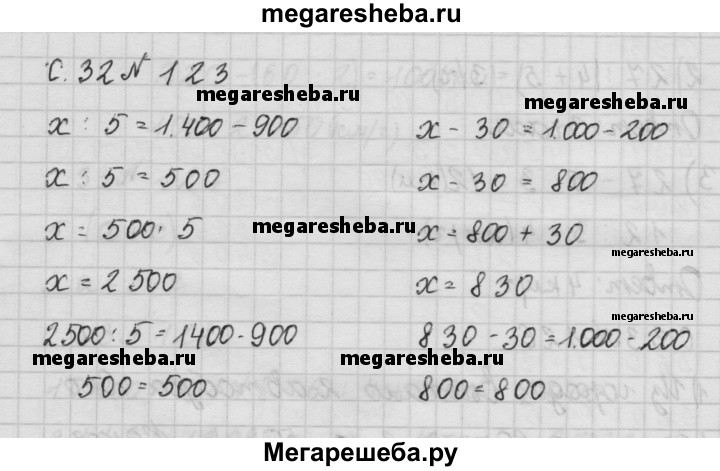 megaresheba.ru
С. 32 № 123
megaresheba.ru
megaresheba.ru
x : 5 = 1.400 - 900
x - 30 = 1.000 - 200
x : 5 = 500
x - 30 = 800
x = 500 · 5
x = 800 + 30
megaresheba.ru
megaresheba.ru
x = 2 500
x = 8 30
megaresheba.ru
2500 : 5 = 1400 - 900
8 30 - 30 = 1.000 - 200
megaresheba.ru
megaresheba.ru
500 = 500
800 = 800
Мегарешеба.ру